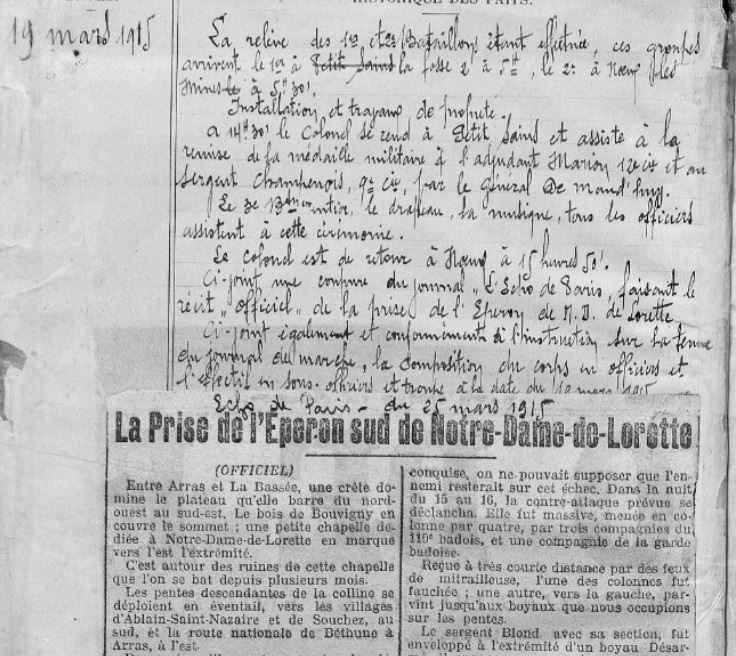 HISTORIQUE DES FAITS.
19 mars 1915
La relève des 1er et 2e Bataillons étant effectuée, ces groupes
arrivent le 1er à Petit Sains la fosse 2 à 5H, le 2e à Noeux les
Mines à 5H 30'.
Installation et travaux de propreté.
a 14H 30' le Colonel se rend à Petit Sains et assiste à la
remise de la médaille militaire à l'adjudant Marion 12e Cie et au
Sergent Champenois, 9e Cie, par le général De Maud'huy.
Le 3e Bon entier, le drapeau, la musique, tous les officiers
assistent à cette cérémonie.
Le Colonel est de retour à Noeux à 15 heures 50'.
Ci-joint une coupure du journal "L'Echo de Paris, faisant le
récit "officiel" de la prise de l'Eperon de N. D. de Lorette
Ci-joint également et conformément à l'instruction sur la tenue
du journal de marche, la composition du corps en officiers et
l'effectif en sous-officiers et troupe à la date du mars 1915
Echo de Paris - du 25 mars 1915
La Prise de l'Eperon sud de Notre-Dame-de-Lorette
(OFFICIEL)
Entre Arras et La Bassée, une crête do-
mine le plateau qu'elle barre du nord-
ouest au sud-est. Le bois de Bouvigny en
couvre le sommet ; une petite chapelle dé-
diée à Notre-Dame-de-Lorette en marque
vers l'est l'extrémité.
C'est autour des ruines de cette chapelle
que l'on se bat depuis plusieurs mois.
Les pentes descendantes de la colline se
déploient en éventail, vers les villages
d'Ablain-Saint-Nazaire et de Souchez, au
sud, et la route nationale de Béthune à
Arras, à l'est.
conquise, on ne pouvait supposer que l'en-
nemi resterait sur cet échec. Dans la nuit
du 15 au 16, la contre-attaque prévue se
déclancha. Elle fut massive, menée en co-
lonne par quatre, par trois compagnies du
110e badois, et une compagnie de la garde
badoise.
Reçue à très courte distance par des feux
de mitrailleuse, l'une des colonnes fut
fauchée ; une autre, vers la gauche, par-
vint jusqu'aux boyaux que nous occupions
sur les pentes.
Le sergent Blond, avec sa section, fut
enveloppé à l'extrémité d'un boyau. Désar-